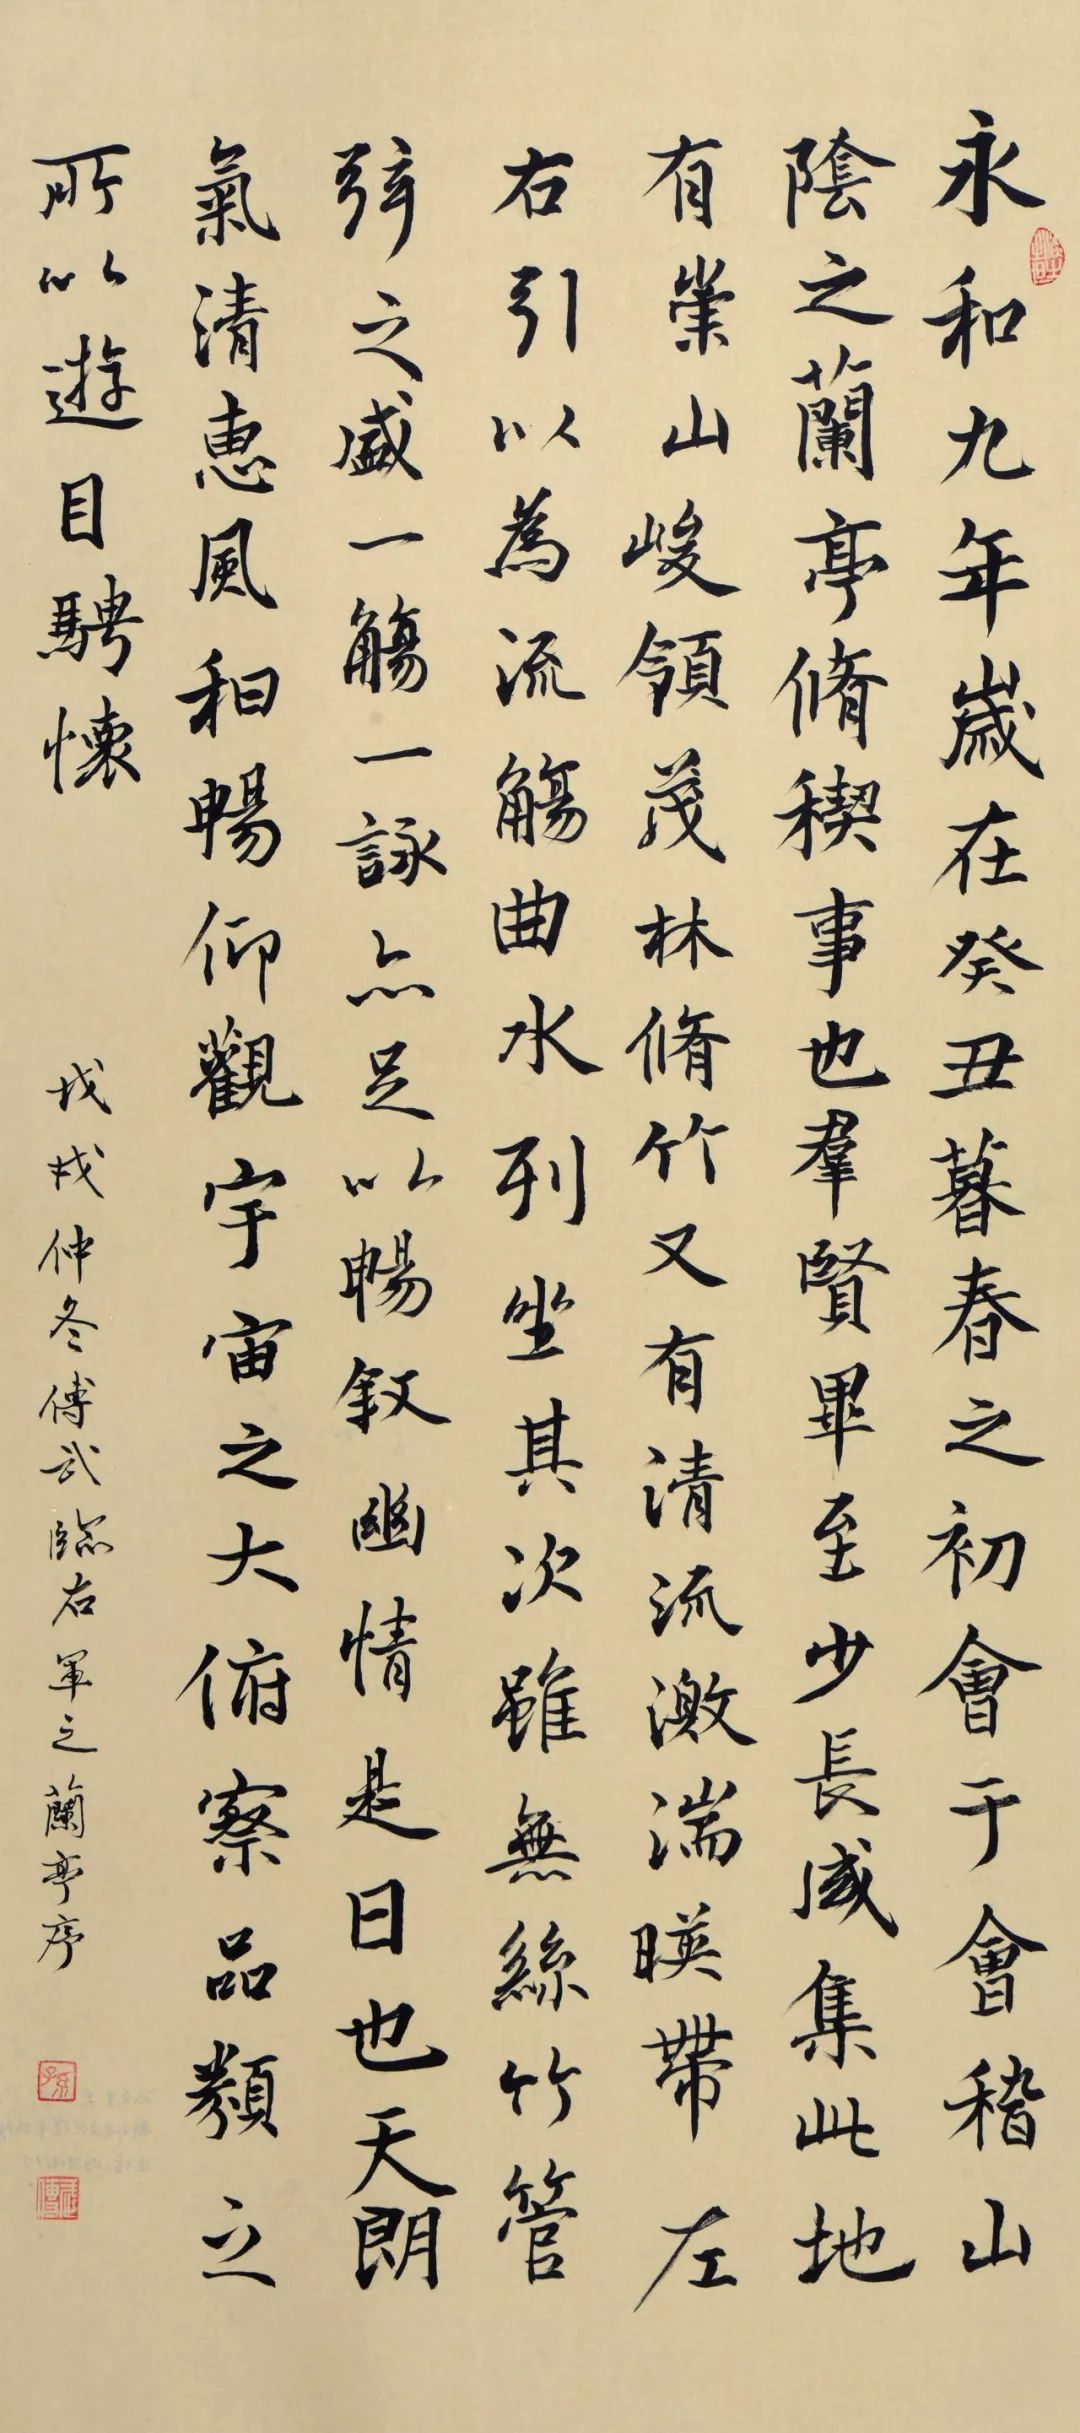 永和九年歲在癸丑暮春之初會于會稽山
陰之蘭亭脩稧事也羣賢畢至少長咸集此地
有崇山峻領茂林脩竹又有清流激湍暎帶左
右引以為流觴曲水列坐其次雖無絲竹管
弦之盛一觴一詠亦足以暢叙幽情是日也天朗
氣清惠風和暢仰觀宇宙之大俯察品類之
所以遊目騁懷
戊戌仲冬傅武臨右軍之蘭亭序